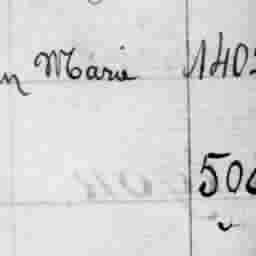 n Marie 1402
506